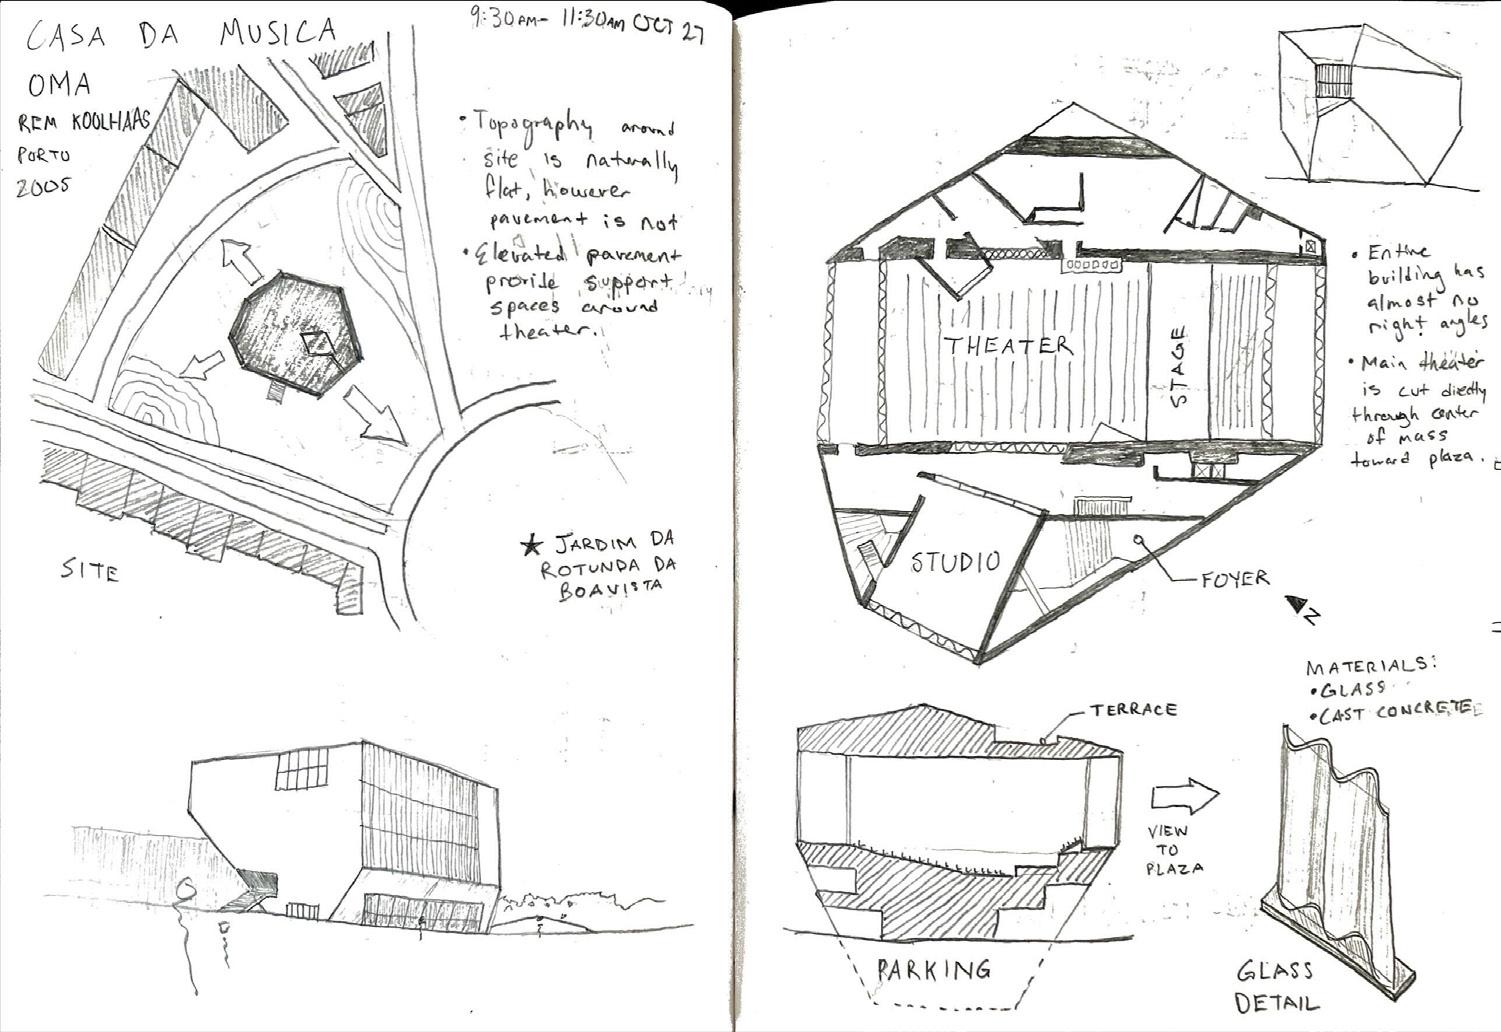 CASA DA MUSICA
OMA
REM KOOLHAAS
PORTO
2005
9:30PM - 11:30AM OCT 27
• Topography around
site is naturally
flat, however
pavement is not
• Elevated pavement
provide support
spaces around
theater.
★ JARDIM DA
ROTUNDA DA
BOAVISTA
SITE
THEATER
STAGE
STUDIO
FOYER
N
• Entire
building has
almost no
right angles
• Main theater
is cut directly
through center
of mass
toward plaza.
MATERIALS:
• GLASS
• CAST CONCRETE
TERRACE
VIEW
TO
PLAZA
PARKING
GLASS
DETAIL